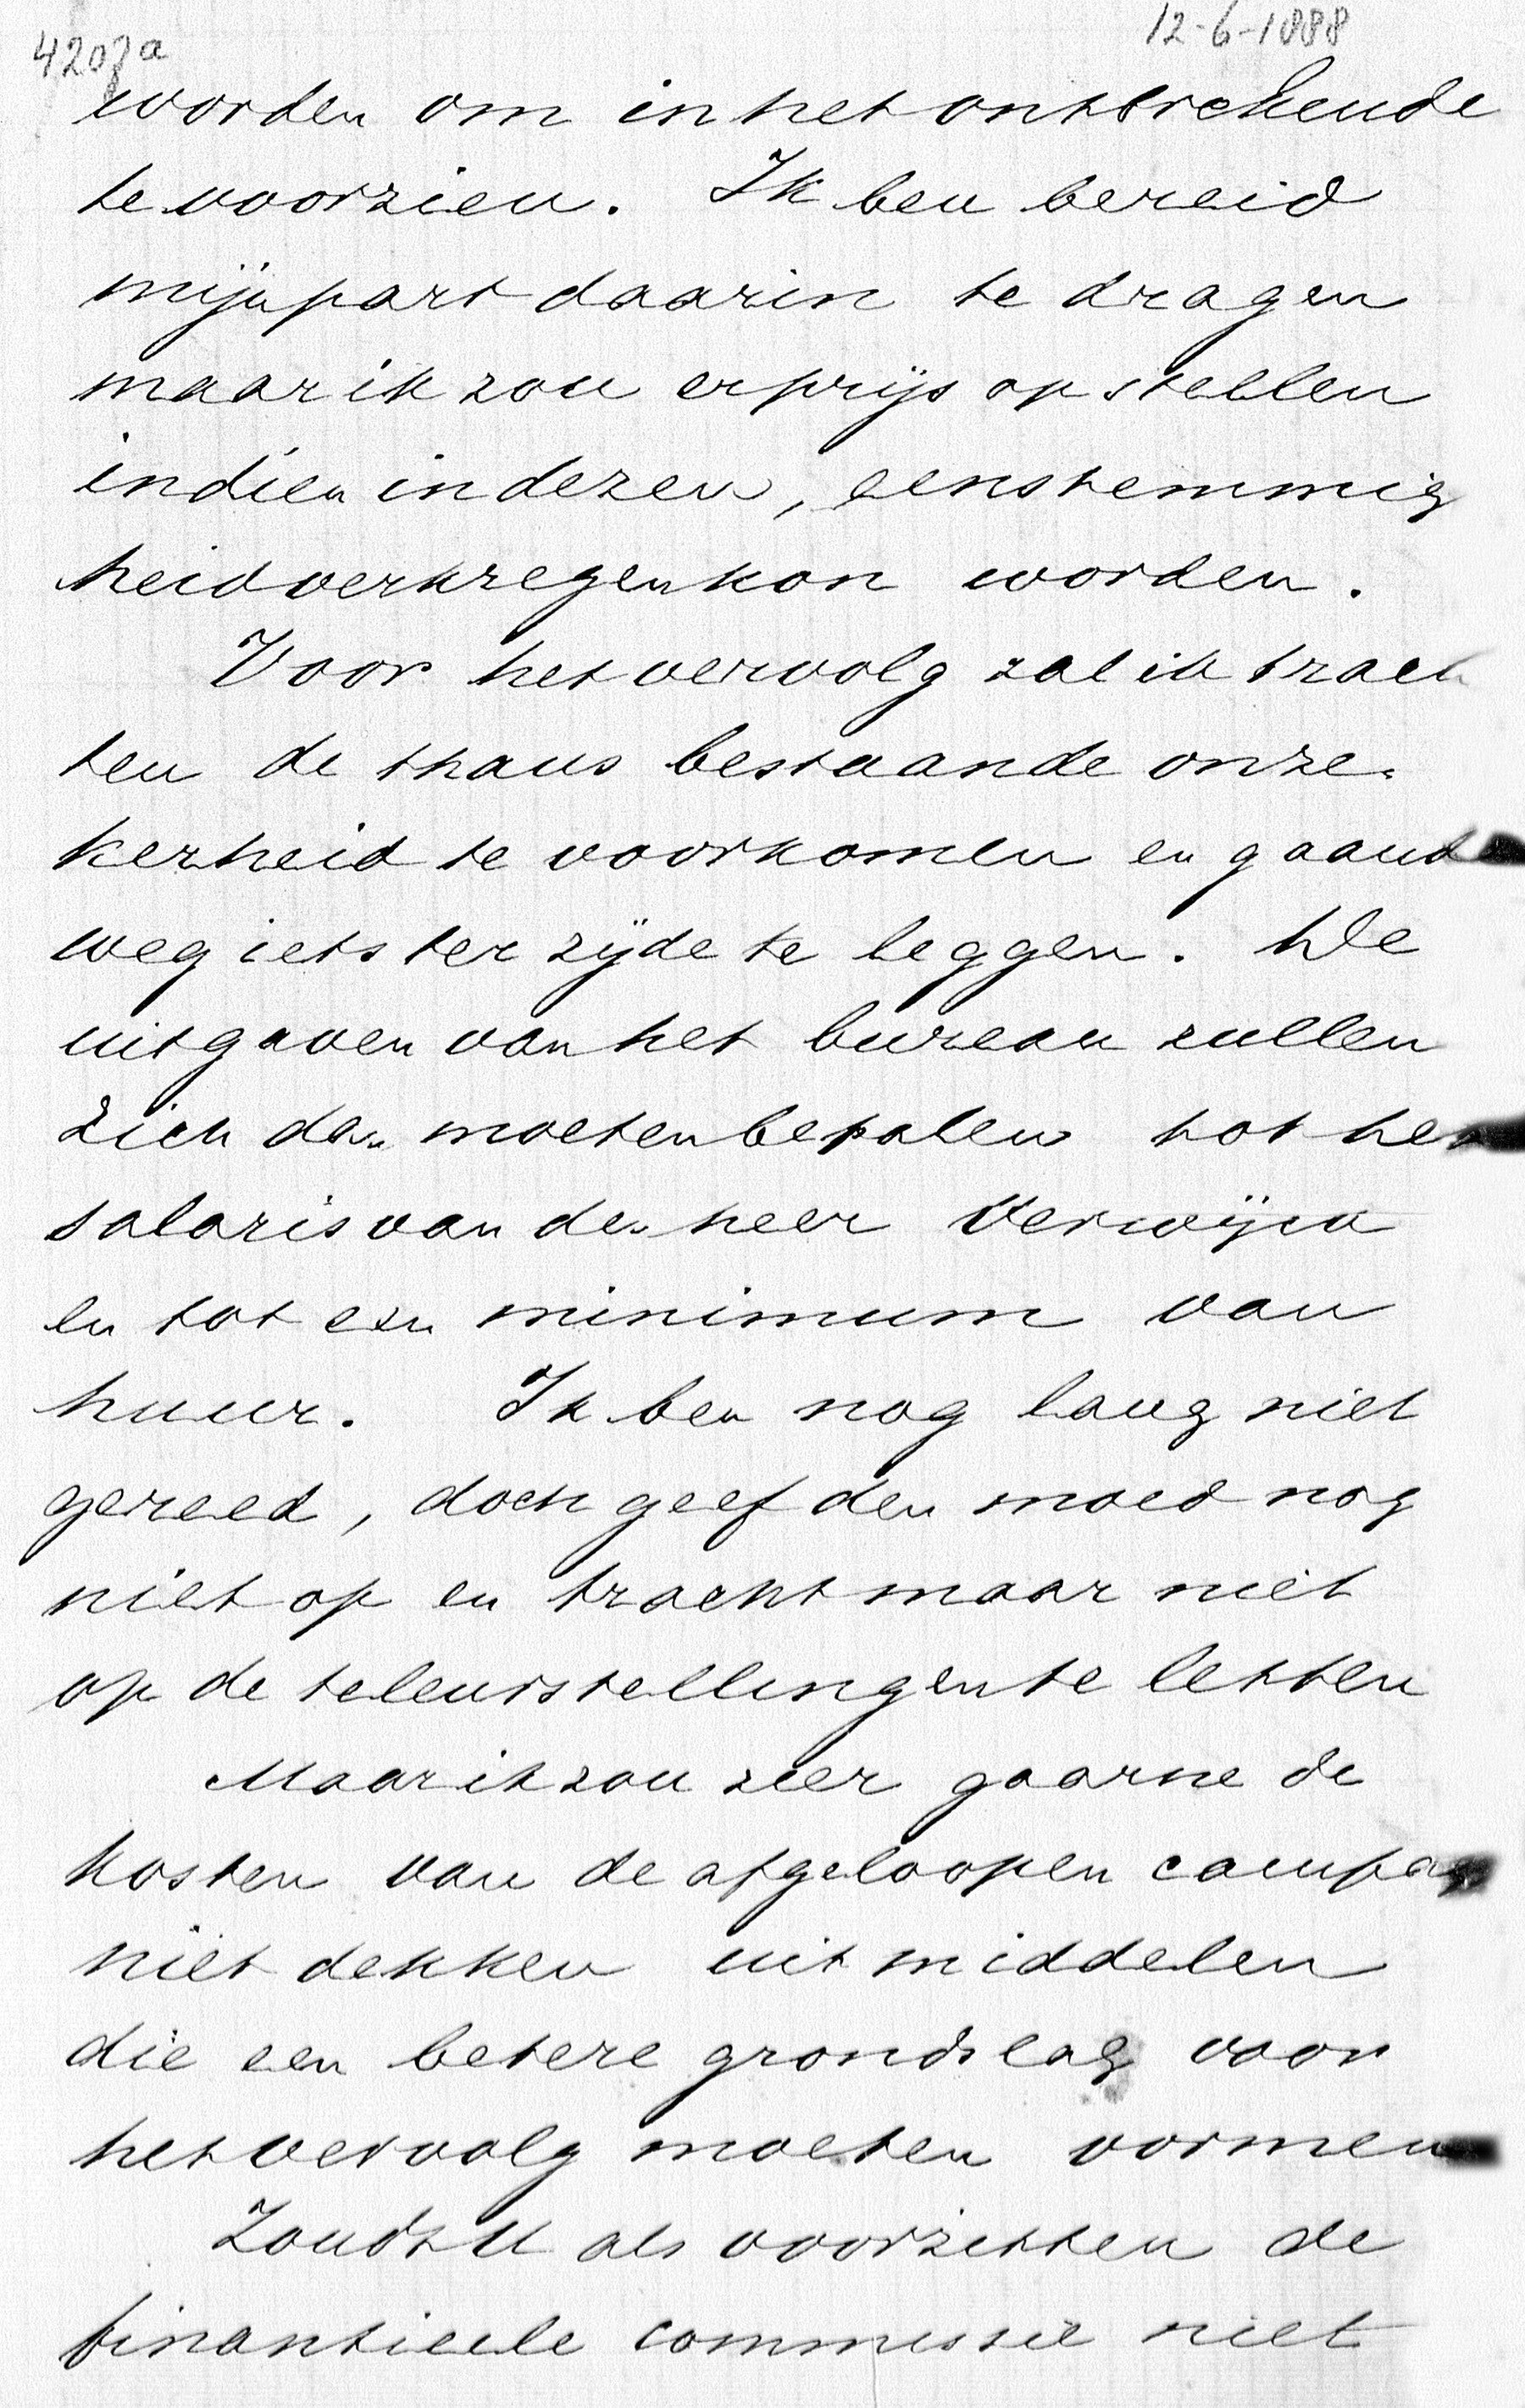 4207a
12-6-1888
worden om in het ontbrekende
te voorzien. Ik ben bereid
mijn part daarin te dragen
maar ik zou er prijs op stellen
indien in dezen, eenstemmig
heid verkregen kon worden.
Voor het vervolg zal ik trach
ten de thans bestaande onze-
kerheid te voorkomen en gaande
weg iets ter zijde te leggen. De
uitgaven van het bureau zullen
zich dan moeten bepalen tot het
salaris van den heer Verwijck
en tot een minimum van
huur. Ik ben nog lang niet
gereed, doch geef den moed nog
niet op en tracht maar niet
op de teleurstellingen te letten
Maar ik zou zeer gaarne de
kosten van de afgeloopen campag
niet dekken uit middelen
die een betere grondslag voor
het vervolg moeten vormen
Zoudt U als voorzitter de
finantieele commissie niet